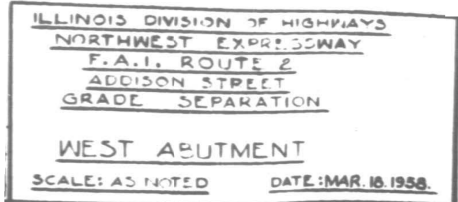 ILLINOIS DIVISION OF HIGHWAYS
NORTHWEST EXPRESSWAY
F.A.I. ROUTE 2
ADDISON STREET
GRADE SEPARATION
WEST ABUTMENT
SCALE: AS NOTED DATE: MAR. 18. 1958.